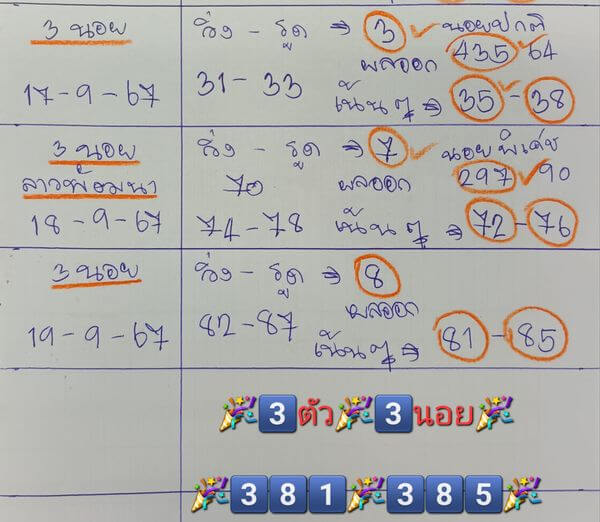 3 นอย วิ่ง - รูด ⇒ 3 ✓ นอยปกติ
ผลออก 435 ✓ 64
17-9-67 31-33 เน้นๆ ⇒ 35 - 38
3 นอย วิ่ง - รูด ⇒ 7 ✓ นอยพิเศษ
ลาวพัฒนา 70 ผลออก 297 ✓ 90
18-9-67 74-78 เน้นๆ ⇒ 72 - 76
3 นอย วิ่ง - รูด ⇒ 8
ผลออก
19-9-67 82-87 เน้นๆ ⇒ 81 - 85
🎉3️⃣ตัว🎉3️⃣นอย🎉
🎉3️⃣8️⃣1️⃣🎉3️⃣8️⃣5️⃣🎉